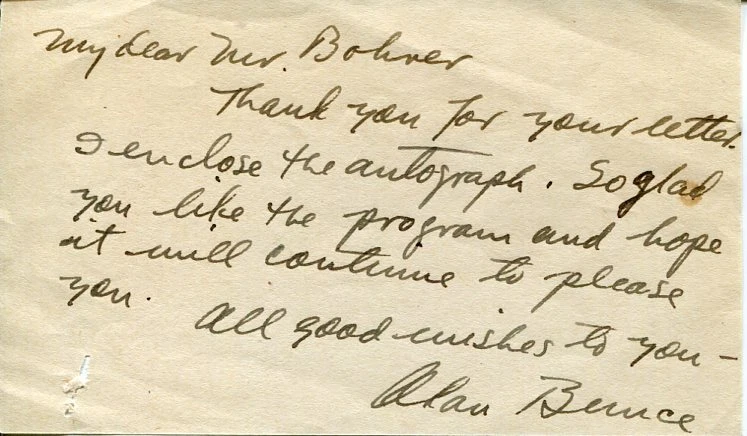 My dear Mr. Bohrer
Thank you for your letter.
I enclose the autograph. So glad
you like the program and hope
it will continue to please
you.
All good wishes to you —
Alan Bunce